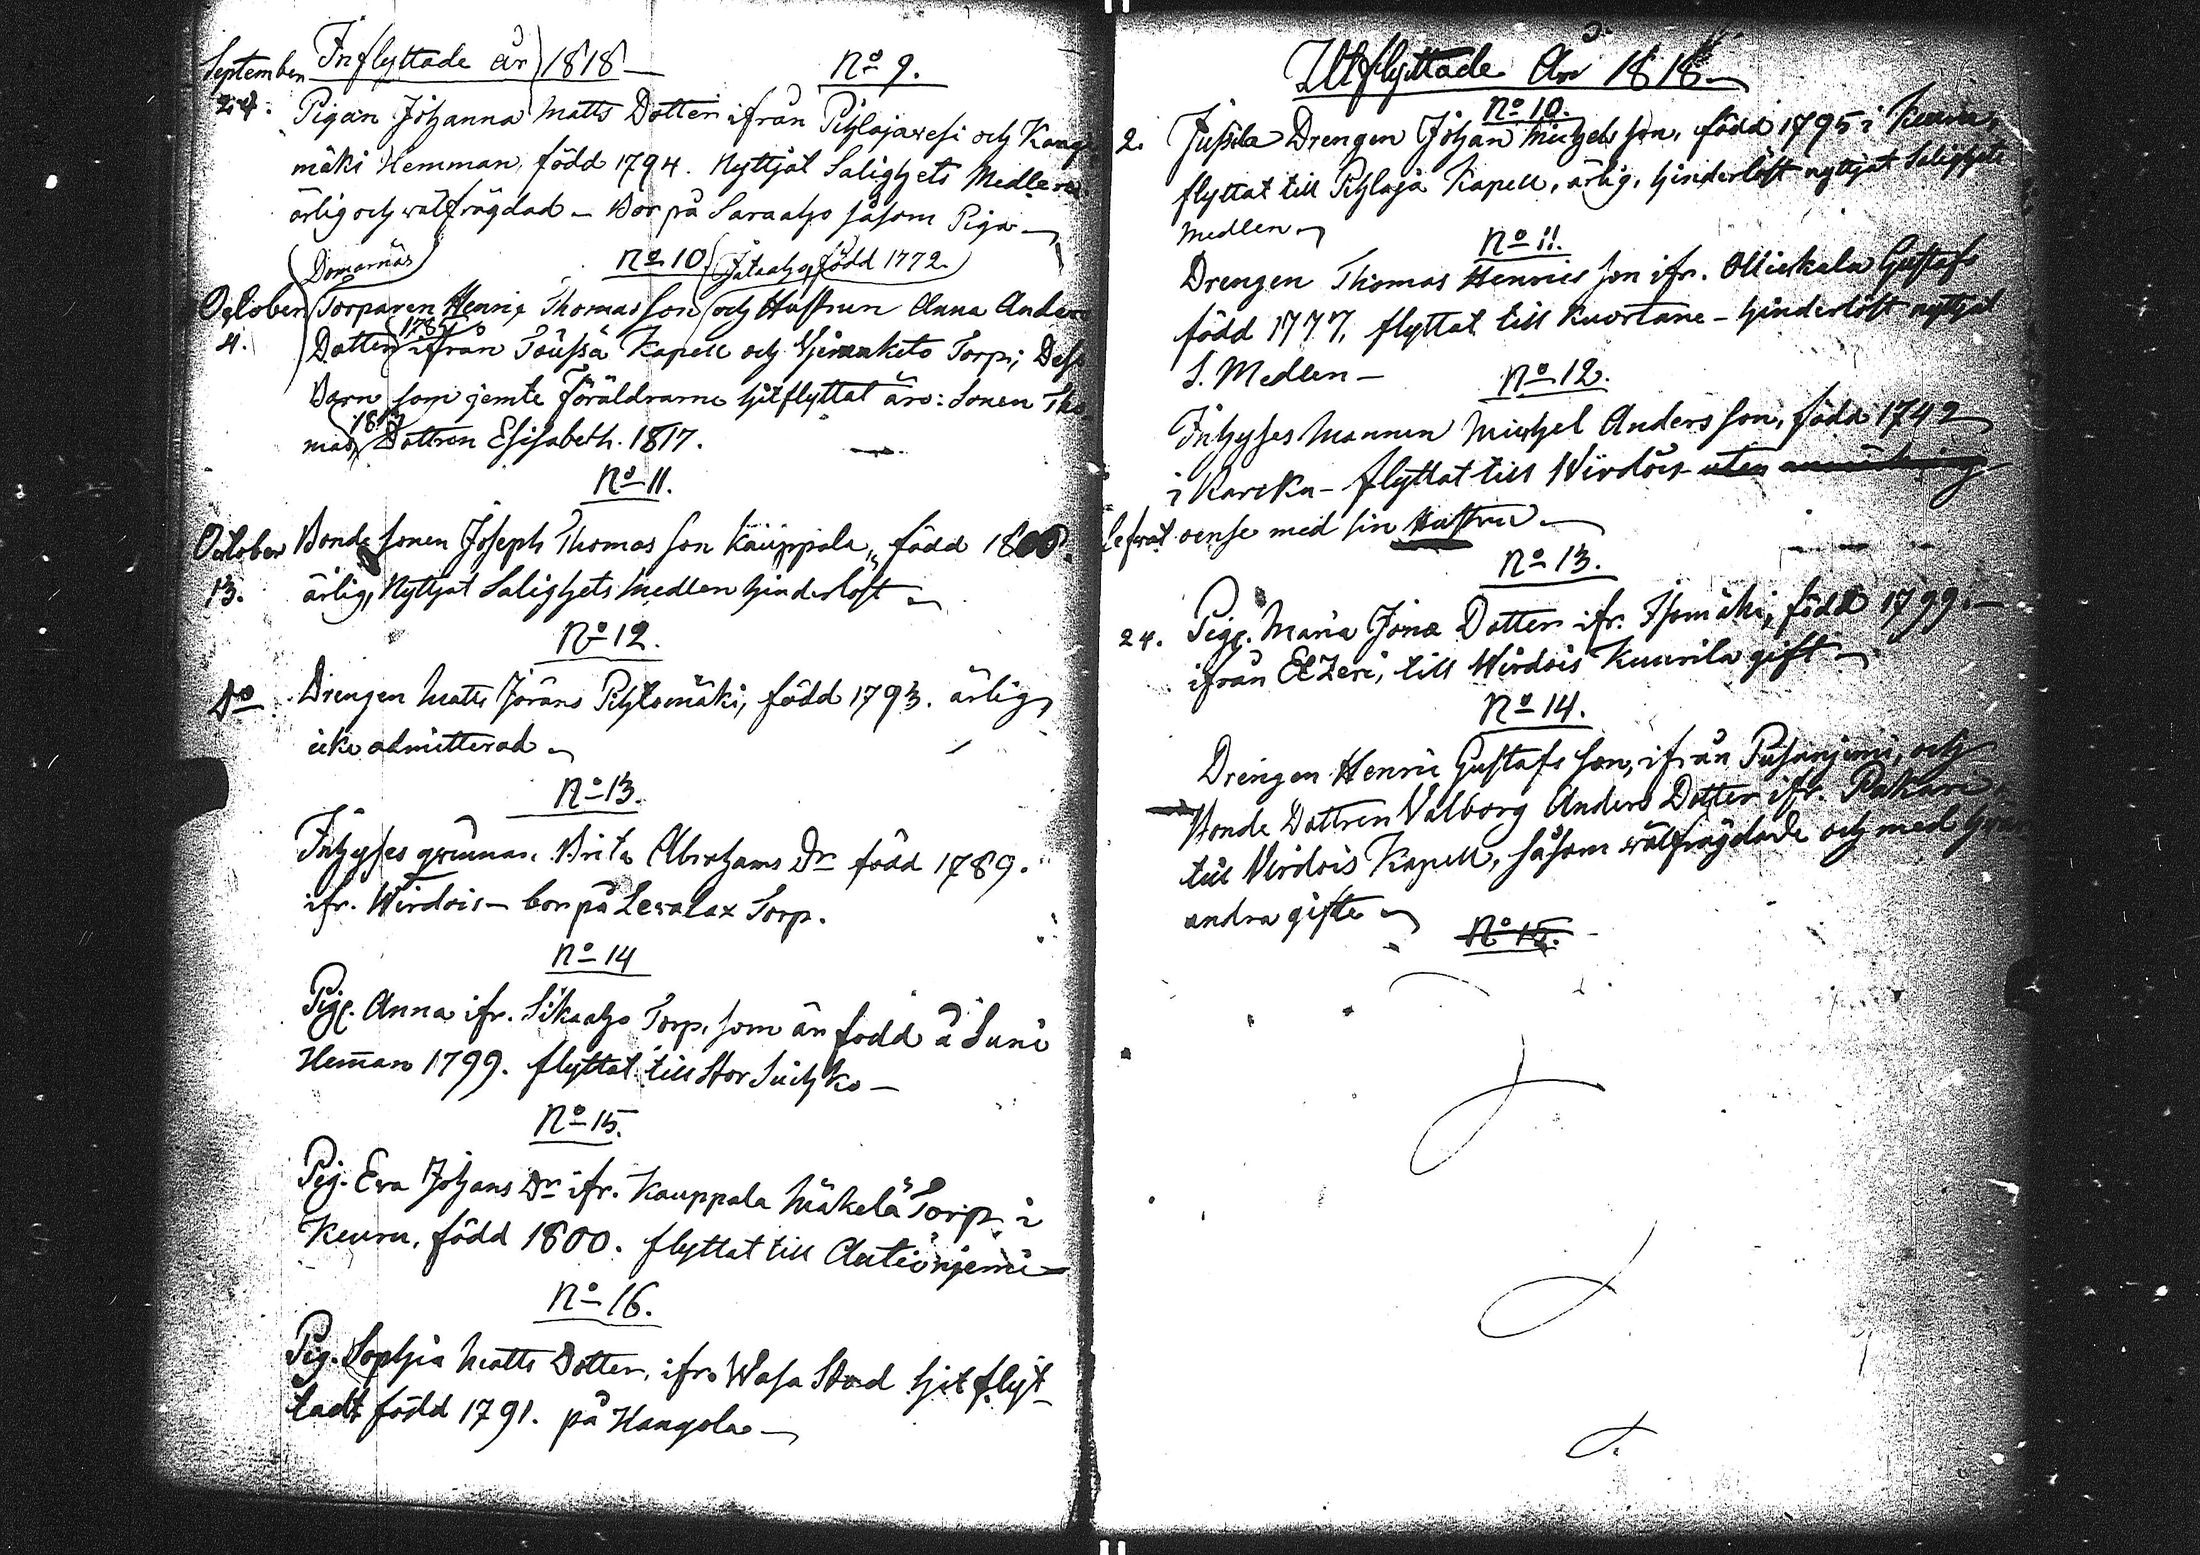 Inflyttade år 1818 —
No 9.
September
24.
Pigan Johanna Matts Dotter ifrån Pihlajavesi och Kang
mäki Hemman, född 1794. Nyttjat Salighets Medlen
ärlig och välfrägdad — Bor på Saraaho såsom Piga —
Domarnäs
No 10
född 1772.
October
4.
Torparen Henric Thomas Son och Hustrun Anna Anders
Dotter ifrån Töüsä Kapell och Torp; Dess
Barn som jemte Föräldrarne hitflyttat äro: Sonen Tho
mas, Dottren Elisabeth. 1817.
No 11.
October
13.
Bonde Sonen Joseph Thomas Son Kauppala, född 1800.
ärlig, Nyttjat Salighets Medlen hinderlöst
No 12.
Do
Drengen Matts Jörans Pihlomäki, född 1793. ärlig,
icke admitterad
No 13.
Inhyses qvinnan Brita Abrahams Dr född 1789.
ifr. Wirdois — bor på Levalax Torp.
No 14
Pig. Anna ifr. Sikaaho Torp, som är född å Suni
Heman 1799. flyttat till Stor Suihko —
No 15.
Pig. Eva Johans Dr ifr. Kauppala Mäkelä Torp i
Keuru, född 1800. flyttat till Autionjemi —
No 16.
Pig. Sophia Matts Dotter, ifr. Wasa Stad hitflyt-
tadt född 1791. på Hangola —
Utflyttade År 1818 —
No 10.
2. Jussila Drengen Johan Michels Son, född 1795 i Keuru,
flyttat till Pihlaja Kapell, ärlig, hinderlöst nyttjat Salighets
Medlen
No 11.
Drengen Thomas Henrics Son ifr. Ollickala Gustafs
född 1777, flyttat till Kuortane — hinderlöst nyttjat
S. Medlen —
No 12.
Inhyses Mannen Michel Anders Son, född 1742
i Karcku — flyttat till Wirdois utan anmärkning
Lefvat oense med sin Hustru —
No 13.
24. Pig. Maria Jona Dotter ifr. Isomäki, född 1799. —
ifrån Etzeri, till Wirdois Kuurila gift —
No 14.
Drengen Henric Gustafs Son, ifrån Pusanjemi, och
Bonde Dottren Valborg Anders Dotter ifr. Pakari,
till Virdois Kapell, såsom välfrägdade och med hvar
andra gifte
No 15.